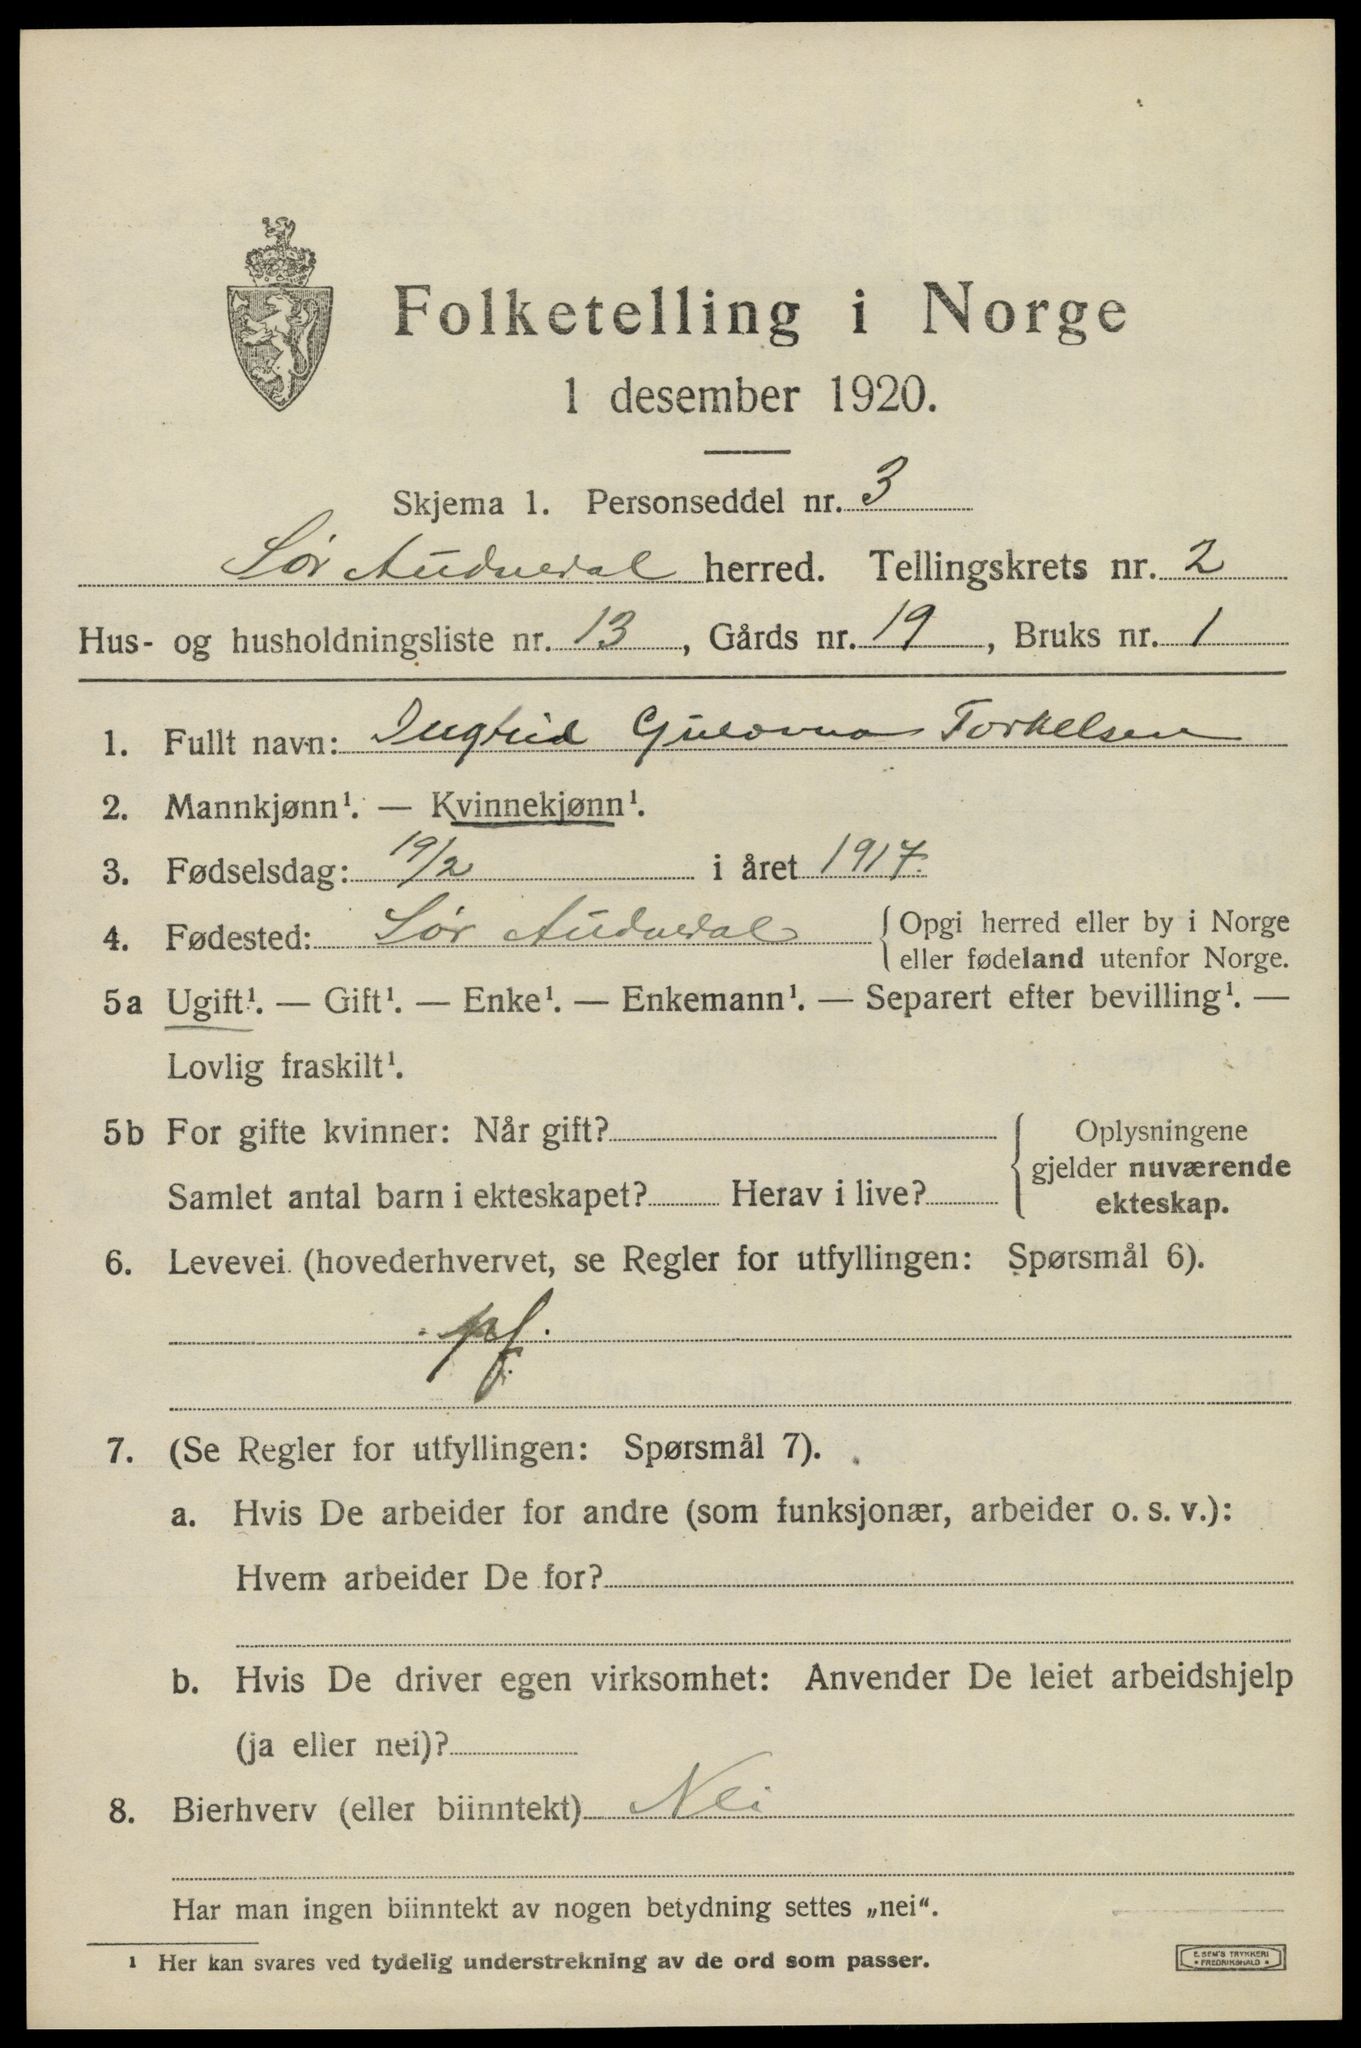 Folketelling i Norge
1 desember 1920.
Skjema 1. Personseddel nr. 3
Sør Audnedal herred. Tellingskrets nr. 2
Hus- og husholdningsliste nr. 13, Gårds nr. 19, Bruks nr. 1
1. Fullt navn: Ingrid Torkelsen
2. Mannkjønn¹. — Kvinnekjønn¹.
3. Fødselsdag: 19/2 i året 1917.
4. Fødested: Sør Audnedal {Opgi herred eller by i Norge
eller fødeland utenfor Norge.
5a Ugift¹. — Gift¹. — Enke¹. — Enkemann¹. — Separert efter bevilling¹. —
Lovlig fraskilt¹.
5b For gifte kvinner: Når gift? {Oplysningene
gjelder nuværende
Samlet antal barn i ekteskapet? Herav i live? ekteskap.
6. Levevei (hovederhvervet, se Regler for utfyllingen: Spørsmål 6).
pf.
7. (Se Regler for utfyllingen: Spørsmål 7).
a. Hvis De arbeider for andre (som funksjonær, arbeider o. s. v.):
Hvem arbeider De for?
b. Hvis De driver egen virksomhet: Anvender De leiet arbeidshjelp
(ja eller nei)?
8. Bierhverv (eller biinntekt) Nei
Har man ingen biinntekt av nogen betydning settes „nei“.
¹ Her kan svares ved tydelig understrekning av de ord som passer.
E. SEM'S TRYKKERI
* FREDRIKSHALD *